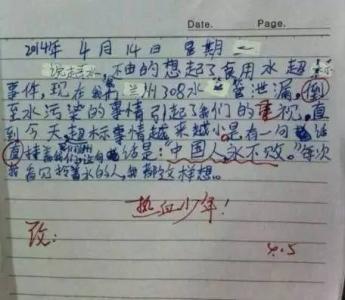 Date. Page.
2014年 4月14日 星期一
说起水,不由的想起了食用水超标
事件,现在 兰州308水 管泄漏,倒
至水污染的事情引起了我们的重视,直
到今天超标事情越来越小是有一句话
直挂着我们 话是:"中国人永不败。"每次
我看见拎着水的人,我都这样想。
热血少年!
改: 4.5